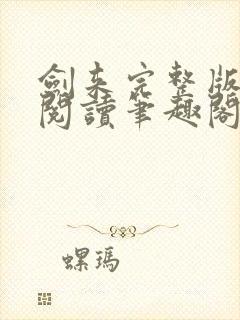 劍来完整版
閱讀筆趣閣
螺瑪